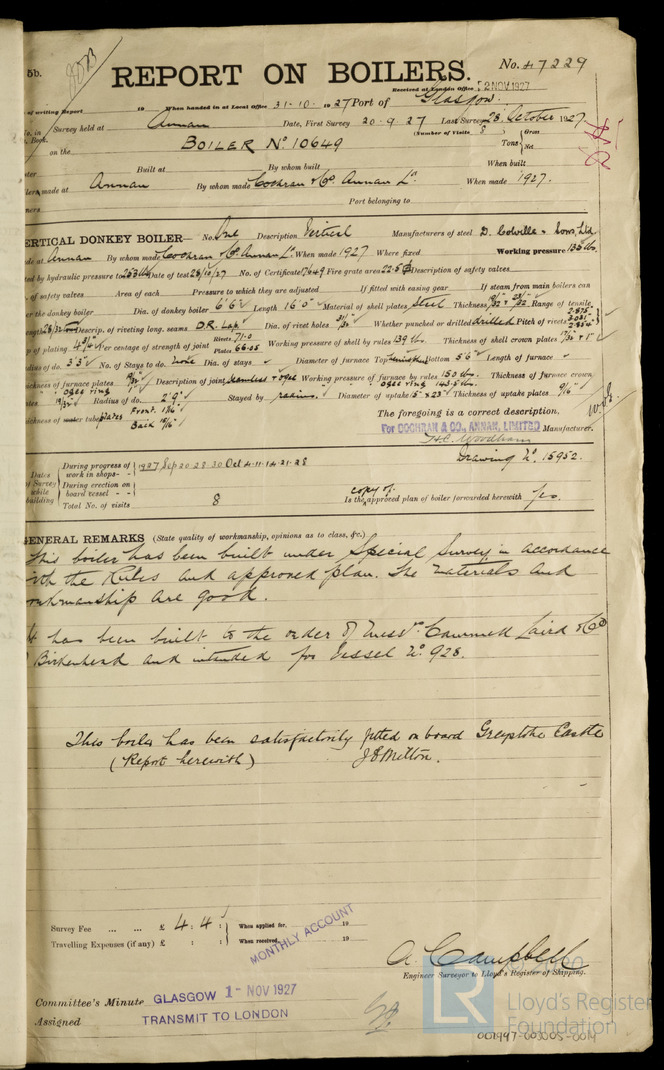 5b.
No. 47229
REPORT ON BOILERS.
Received at London Office 2 NOV 1927
of writing Report 19 When handed in at Local Office 31-10-1927 Port of Glasgow.
No. in Survey held at Annan Date, First Survey 20.9.27 Last Survey 28 October 1927
Book. (Number of Visits 8) Gross
on the BOILER No 10649 Tons Net
Built at By whom built When built
made at Annan By whom made Cochran & Co. Annan Ld. When made 1927.
Port belonging to
ERTICAL DONKEY BOILER— No. One Description Vertical Manufacturers of steel D. Colville & Sons Ltd
de at Annan By whom made Cochran & Co. Annan Ld. When made 1927 Where fixed Working pressure 135 lbs.
ted by hydraulic pressure to 253 lbs Date of test 28/10/27 No. of Certificate Fire grate area 22.5 Description of safety valves
. of safety valves Area of each Pressure to which they are adjusted If fitted with easing gear If steam from main boilers can
er the donkey boiler Dia. of donkey boiler 6'6" Length 16'0" Material of shell plates Steel Thickness Range of tensile
ength 28/32 tons Descrip. of riveting long. seams D.R. Lap. Dia. of rivet holes 31/32 Whether punched or drilled drilled Pitch of rivets 2.875"
p of plating 4 1/4" Per centage of strength of joint Rivets 71.0 Plates 66.25 Working pressure of shell by rules 139 lbs. Thickness of shell crown plates
adius of do. 3'3" No. of Stays to do. None Dia. of stays Diameter of furnace Top Bottom 5'6" Length of furnace
ickness of furnace plates 19/32" Description of joint Seamless & ogee Working pressure of furnace by rules 150 lbs. Thickness of furnace crown
" ogee ring " ogee ring 143.5 lbs.
ates 19/32" Radius of do. 2'9" Stayed by radius. Diameter of uptake 15" x 23" Thickness of uptake plates 9/16"
ickness of water tube plates Front. Back 15/16"
The foregoing is a correct description,
For COCHRAN & CO., ANNAN, LIMITED Manufacturer.
H.C. Woodham
Drawing No. 15952.
Dates of Survey while building
During progress of work in shops - - 1927 Sep 20-28-30 Oct 4-11-14-21-28
During erection on board vessel - -
Total No. of visits 8
Is the copy of approved plan of boiler forwarded herewith Yes.
GENERAL REMARKS (State quality of workmanship, opinions as to class, &c.)
This boiler has been built under Special Survey, in accordance
with the Rules and approved plan. The materials and
workmanship are good.
It has been built to the order of Messrs Cammell Laird & Co
Birkenhead and intended for Vessel No. 928.
This boiler has been satisfactorily fitted on board Greystoke Castle
(Report herewith) J E Milton.
Survey Fee ... ... £ 4 : 4 : When applied for, 19
Travelling Expenses (if any) £ : : When received, 19
MONTHLY ACCOUNT
A. Campbell
Engineer Surveyor to Lloyd's Register of Shipping.
Committee's Minute GLASGOW 1 - NOV 1927
Assigned TRANSMIT TO LONDON
© 2020
LR
Lloyd's Register
Foundation
001997-003005-0014